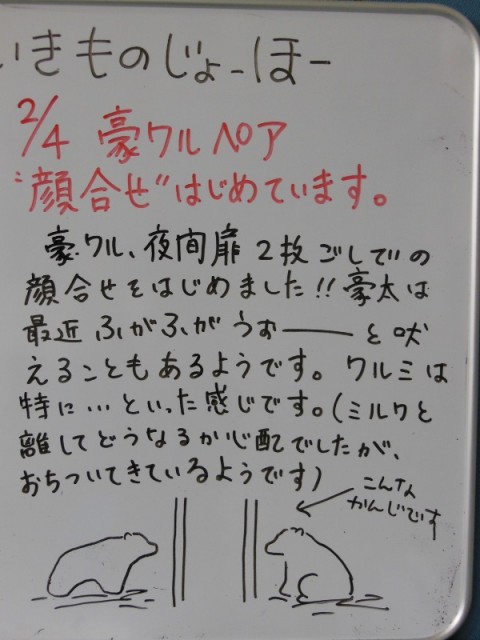 いきものじょーほー
2/4 豪クルペア
"顔合せ"はじめています。
豪・クル、夜間扉2枚ごしでの
顔合せをはじめました!!豪太は
最近ふがふがうぉーーーと吠
えることもあるようです。クルミは
特に…といった感じです。(ミルクと
離してどうなるか心配でしたが、
おちついてきているようです)
こんな
かんじです